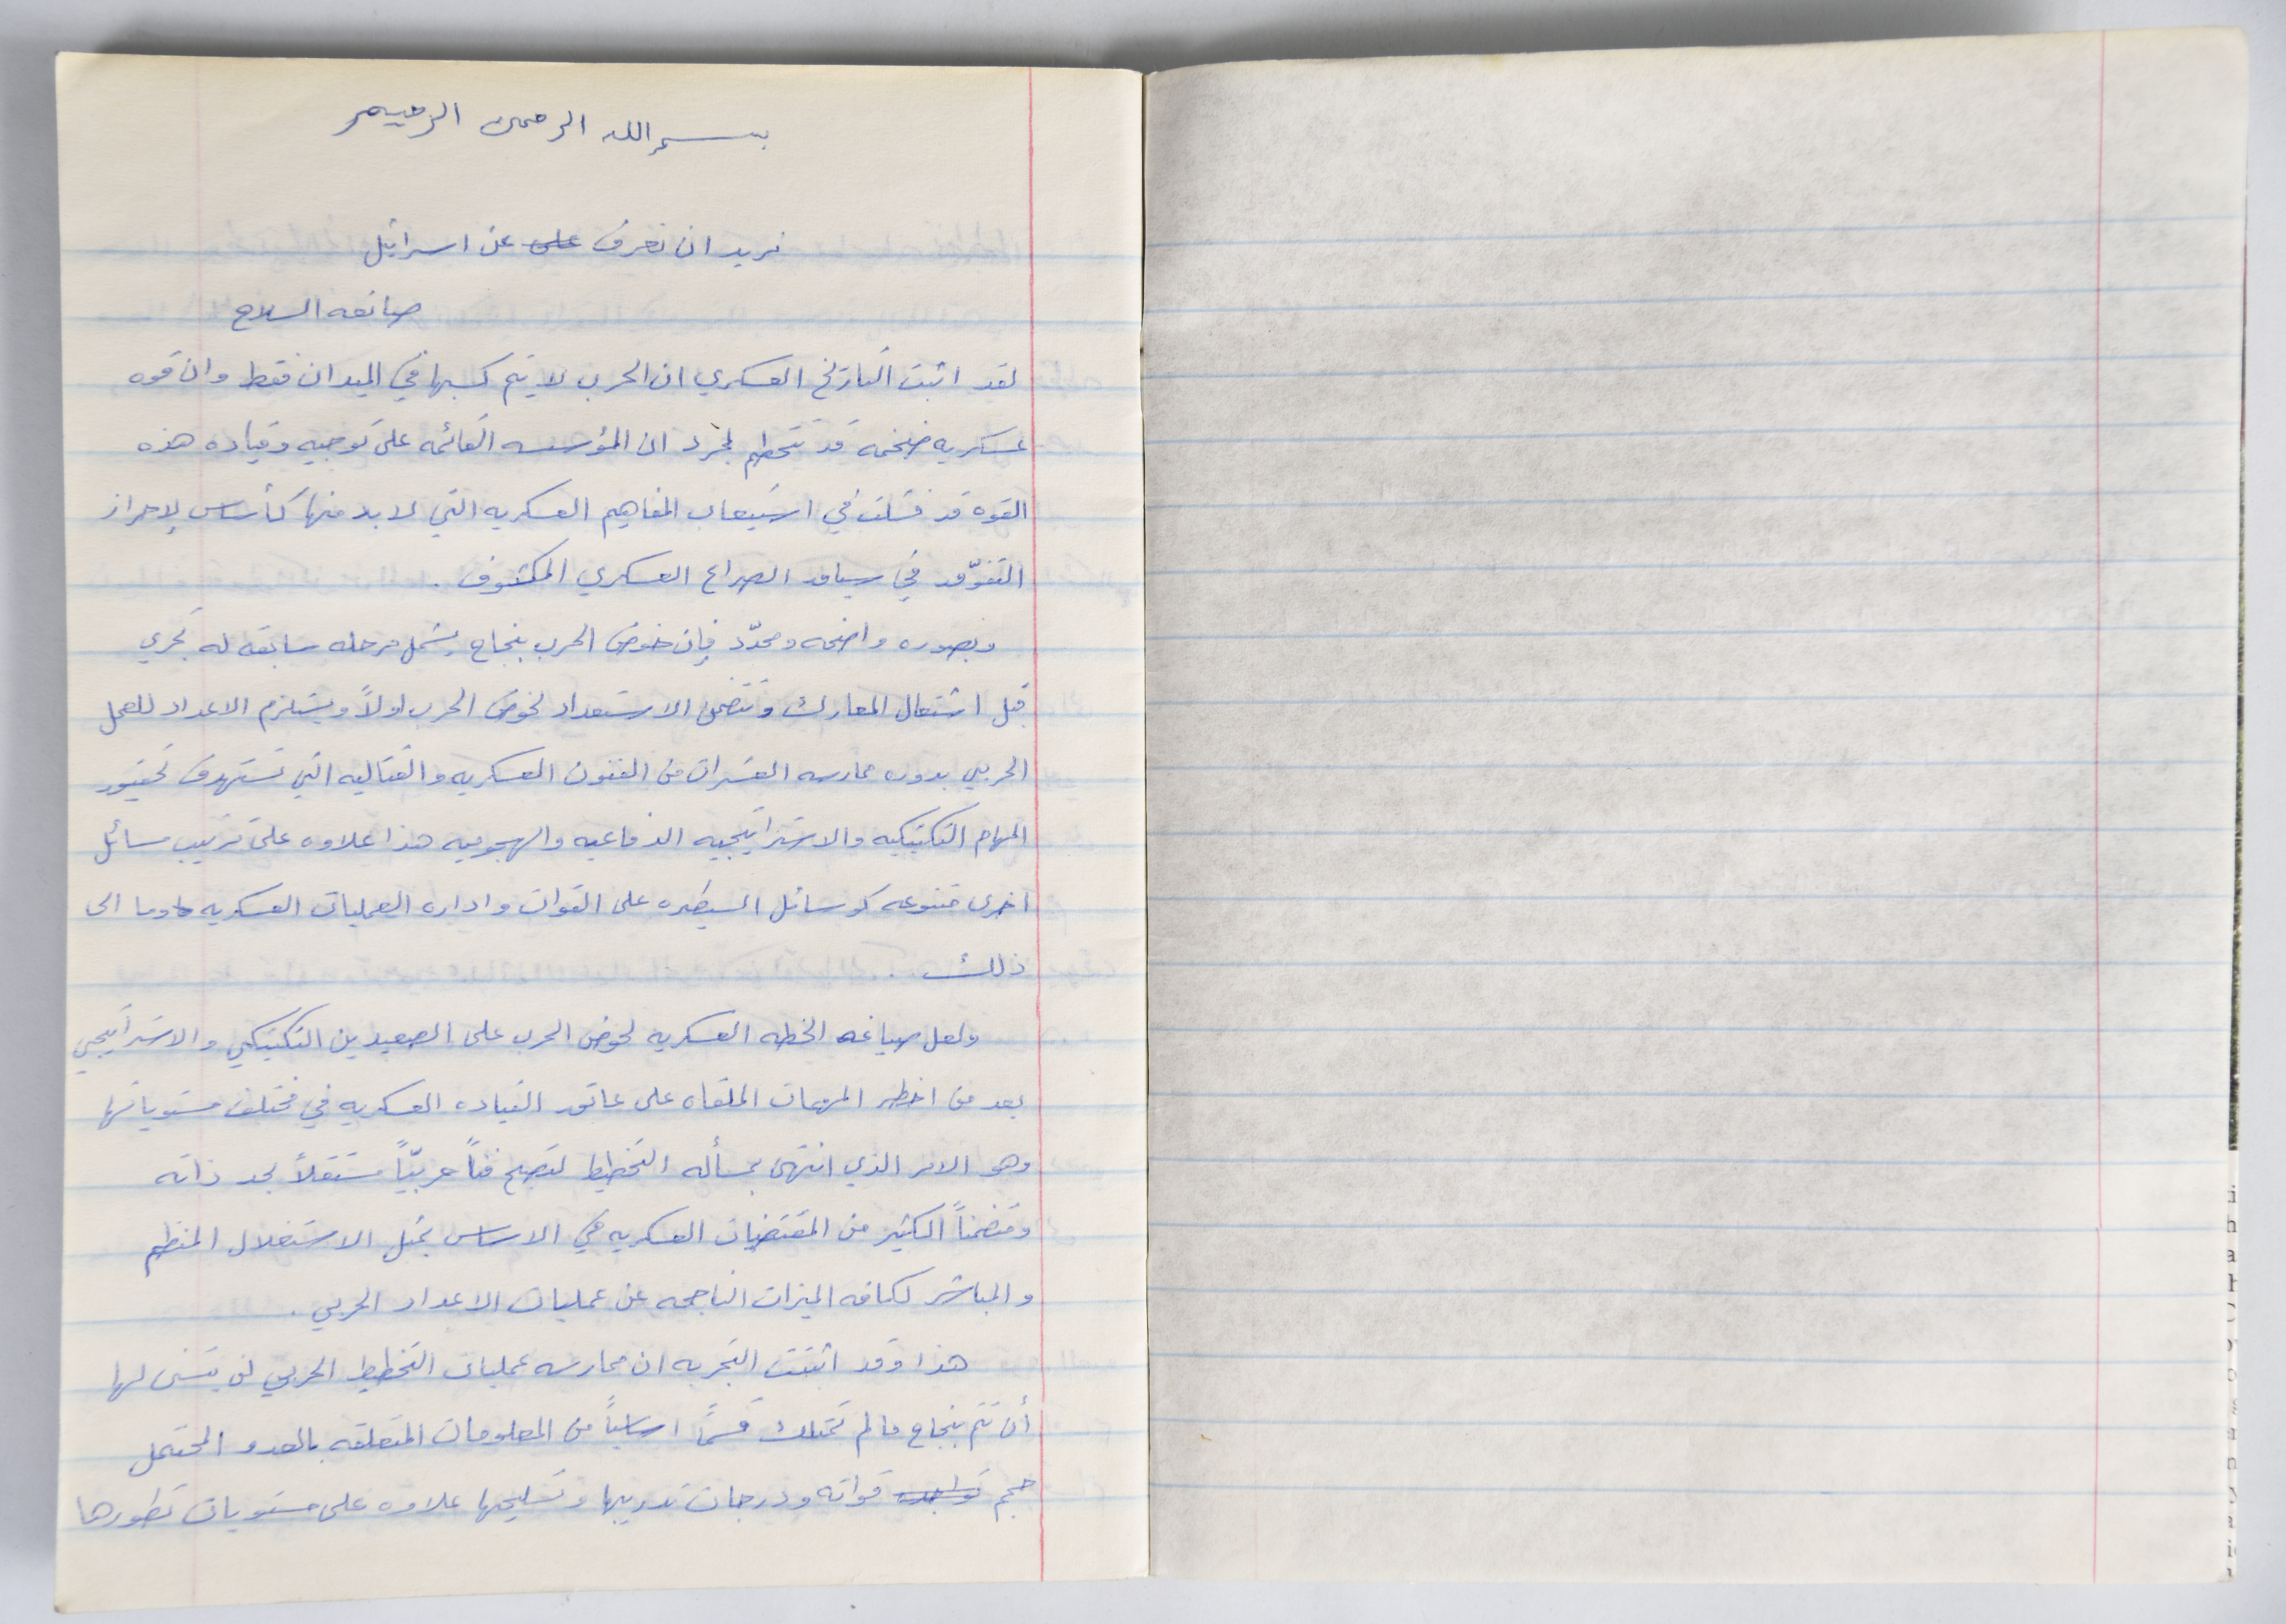 بسم الله الرحمن الرحيم
نريد ان نعرف على عن اسرائيل
صانعه السلاح
لقد اثبت التاريخ العسكري ان الحرب لا يتم كسبها في الميدان فقط وان قوه
عسكريه ضخمه قد تتحطم لمجرد ان المؤسسه القائمه على توجيه وقياده هذه
القوه قد فشلت في استيعاب المفاهيم العسكريه التي لا بد منها كأساس لإحراز
التفوّق في سياق الصراع العسكري المكشوف .
وبصوره واضحه ومحدّد فإن خوض الحرب بنجاح يشمل مرحله سابقه له تجري
قبل اشتعال المعارك وتتضمن الاستعداد لخوض الحرب اولاً ويستلزم الاعداد للعمل
الحربي بدوره ممارسه العشرات من الفنون العسكريه والقتاليه التي تستهدف تحقيق
المهام التكتيكيه والاستراتيجيه الدفاعيه والهجوميه هذا علاوه على ترتيب مسائل
اخرى متنوعه كوسائل السيطره على القوات واداره العمليات العسكريه وما الى
ذلك .
ولعل صياغه الخطه العسكريه لخوض الحرب على الصعيدين التكتيكي والاستراتيجي
يعد من اخطر المهمات الملقاه على عاتق القياده العسكريه في مختلف مستوياتها
وهو الامر الذي انتهى بمسأله التخطيط لتصبح فناً حربيّاً مستقلاً بحد ذاته
ومتضمناً الكثير من المقتضيات العسكريه في الاساس يمثل الاستغلال المنظم
والمباشر لكافه الميزات الناجمه عن عمليات الاعداد الحربي .
هذا وقد اثبتت التجربه ان ممارسه عمليات التخطيط الحربي لن يتسنى لها
أن تتم بنجاح مالم تمتلك قسماً اساسياً من المعلومات المتعلقه بالعدو المحتمل
حجم تواجد قواته ودرجات تدريبها وتسليحها علاوه على مستويات تطورها